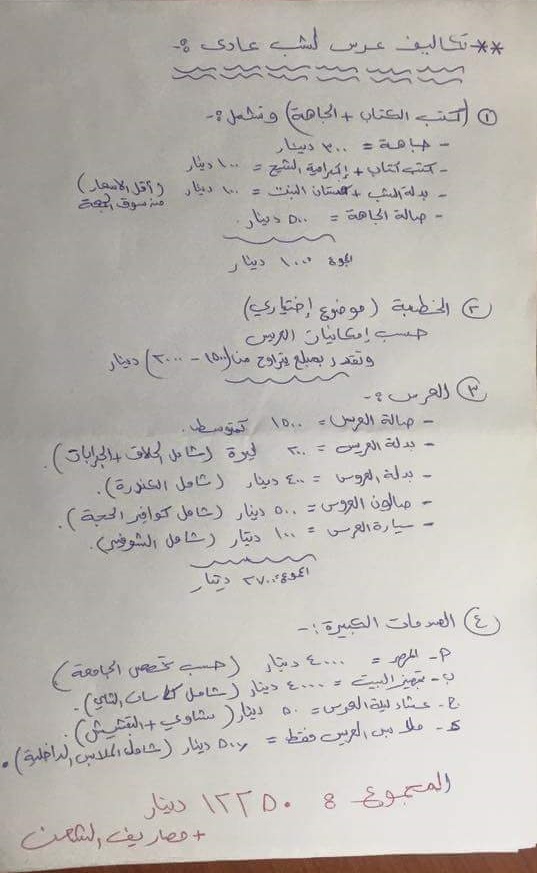 ** تكاليف عرس لشب عادي :-
① (كتب الكتاب + الجاهة) وتشمل :-
- جاهة = ٣٠٠ دينار
- كتب كتاب + إكرامية الشيخ = ١٠٠ دينار
- بدلة الشب + فستان البنت = ١٠٠ دينار (وأقل الأسعار من سوق الجمعة
- صالة الجاهة = ٥٠٠ دينار.
المجموع ١٠٠٠ دينار
② الخطبة (موضوع إختياري)
حسب إمكانيات العريس
وتقدر بمبلغ يتراوح من (١٥٠٠ - ٢٠٠٠) دينار
③ العرس :-
- صالة العرس = ١٥٠٠ كمتوسط.
- بدلة العريس = ٢٠٠ ليرة (شامل الحلاق + الجرابات).
- بدلة العروس = ٤٠٠ دينار (شامل الكندرة).
- صالون العروس = ٥٠٠ دينار (شامل كوافير الحجة).
- سيارة العرس = ١٠٠ دينار (شامل الشوفير).
المجموع: ٢٧٠٠ دينار
④ الصدمات الكبيرة :-
أ- المهر = ٤٠٠٠ دينار (حسب تخصص الجامعة)
ب- تجهيز البيت = ٤٠٠٠ دينار (شامل كاسات الشاي).
ج- عشاء ليلة العرس = ٥٠ دينار (مشاوي + التقشيش).
د- ملابس العريس فقط = ٥٠٠ دينار (شامل الملابس الداخلية).
المجموع : ١٢٢٥٠ دينار
+ مصاريف الشحن